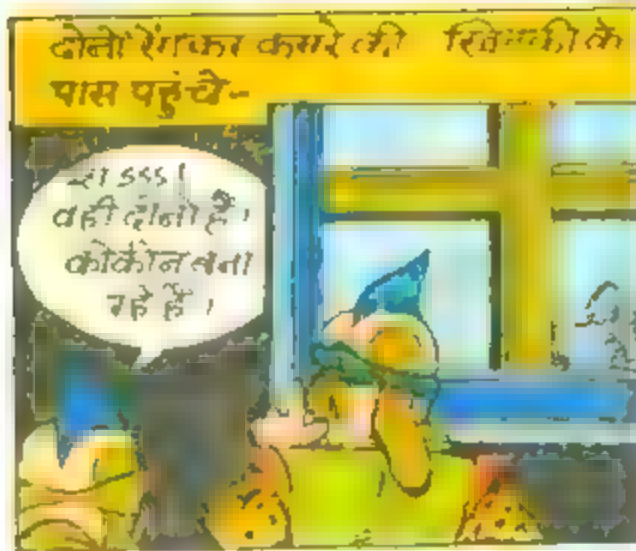 दोनों रेंगकर कमरे की खिड़की के
पास पहुंचे-
शsss!
वही दोनों हैं।
कोकीन बना
रहे हैं।